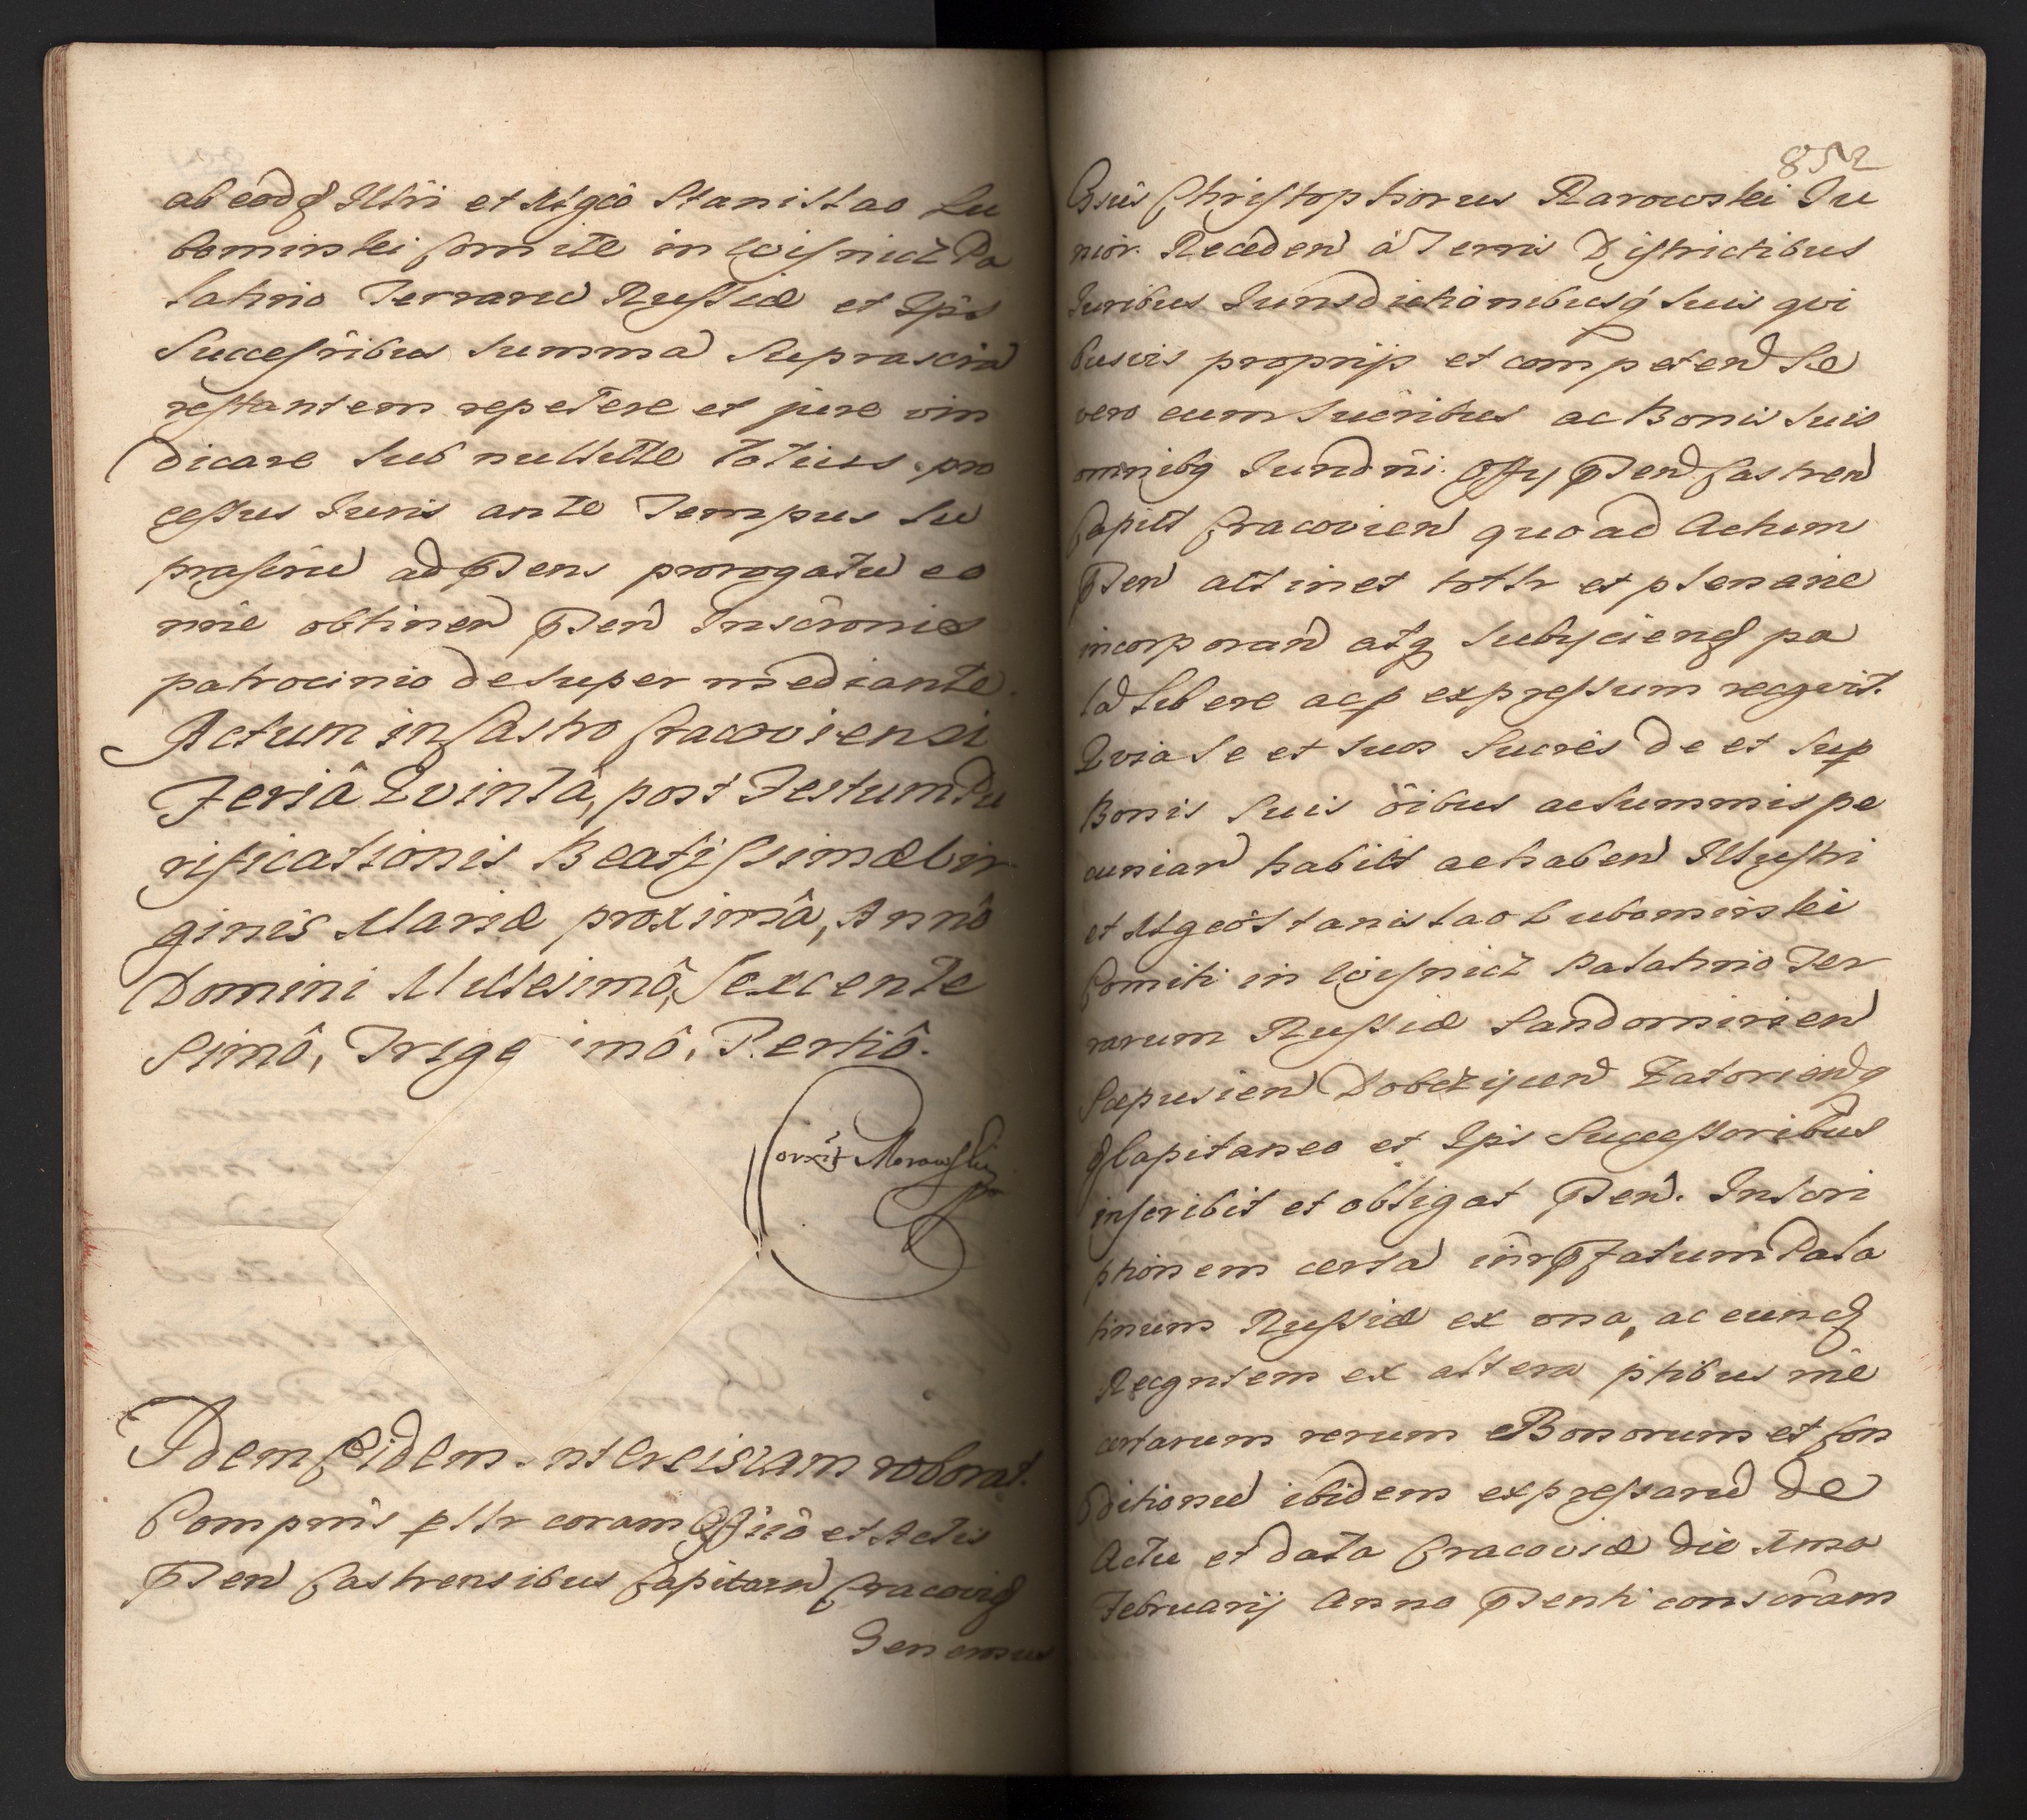 ab eod͡q Illri et Mgco Stanislao Lu
bomirski Comite in Wisnicz Pa
latino Terraru Russiæ et Ipīs
Successribus summa suprascrā
restantem repetere et jure vin
dicare sub nullitte totius pro
cessus Iuris ante Tempus su
prascriū ad Pens prorogatu eo
nrie obtinen Pen Inscrōnis
patrocinio desuper mediante.
Actum in Castro Cracoviensi
Feriâ Qvintâ, post Festum Pu
rificationis Beatissimæ Vir
ginis Mariæ proximâ, Annô
Domini Millesimô, Sexcente
simô, Trige imô, Tertiô.
Corxit Morawski
Idem Eidem nterciziam roborat.
Comprns pltr coram Officio et Actis
Pen Castrensibus Capitaen Cracovi
Generosus
852
Christophorus Rarowski Iu
nior. Receden à Terris Districtibus
Iuribus Iurisdictionibusq́ suis qvi
busvis proprijs et competen Se
vero cum sucribus ac Bonis suis
omnibq Iurdñi. Offy Pen Castren
Capitt Cracovien quo ad Actum
Pen attinet tottr et plenarie
incorporan atq subyciens pa
lā libere acp expressum recgvit.
Qvia Se et suos Sucrēs de et sup
Bonis suis oîbus ac summis pe
cuniar habitt ac haben Illustri
et Mgcō Stanislao Lubomirski
Comiti in Wisnicz Palatino Ter
rarum Russiæ Sandomirien
Scepusien Dobczycen Zatorienq
Capitaneo et Ipīs Successoribus
inscribit et obligat Pen. Inscri
ptionem certā intr Pfatum Pala
tinum Russiæ ex una, ac eund
Recgntem ex altera ptibus rnē
certarum rerum Bonorum et Con
ditionū ibidem expressarū de
Actu et data Cracoviæ die Ima
Februarij Anno Penti conscrām